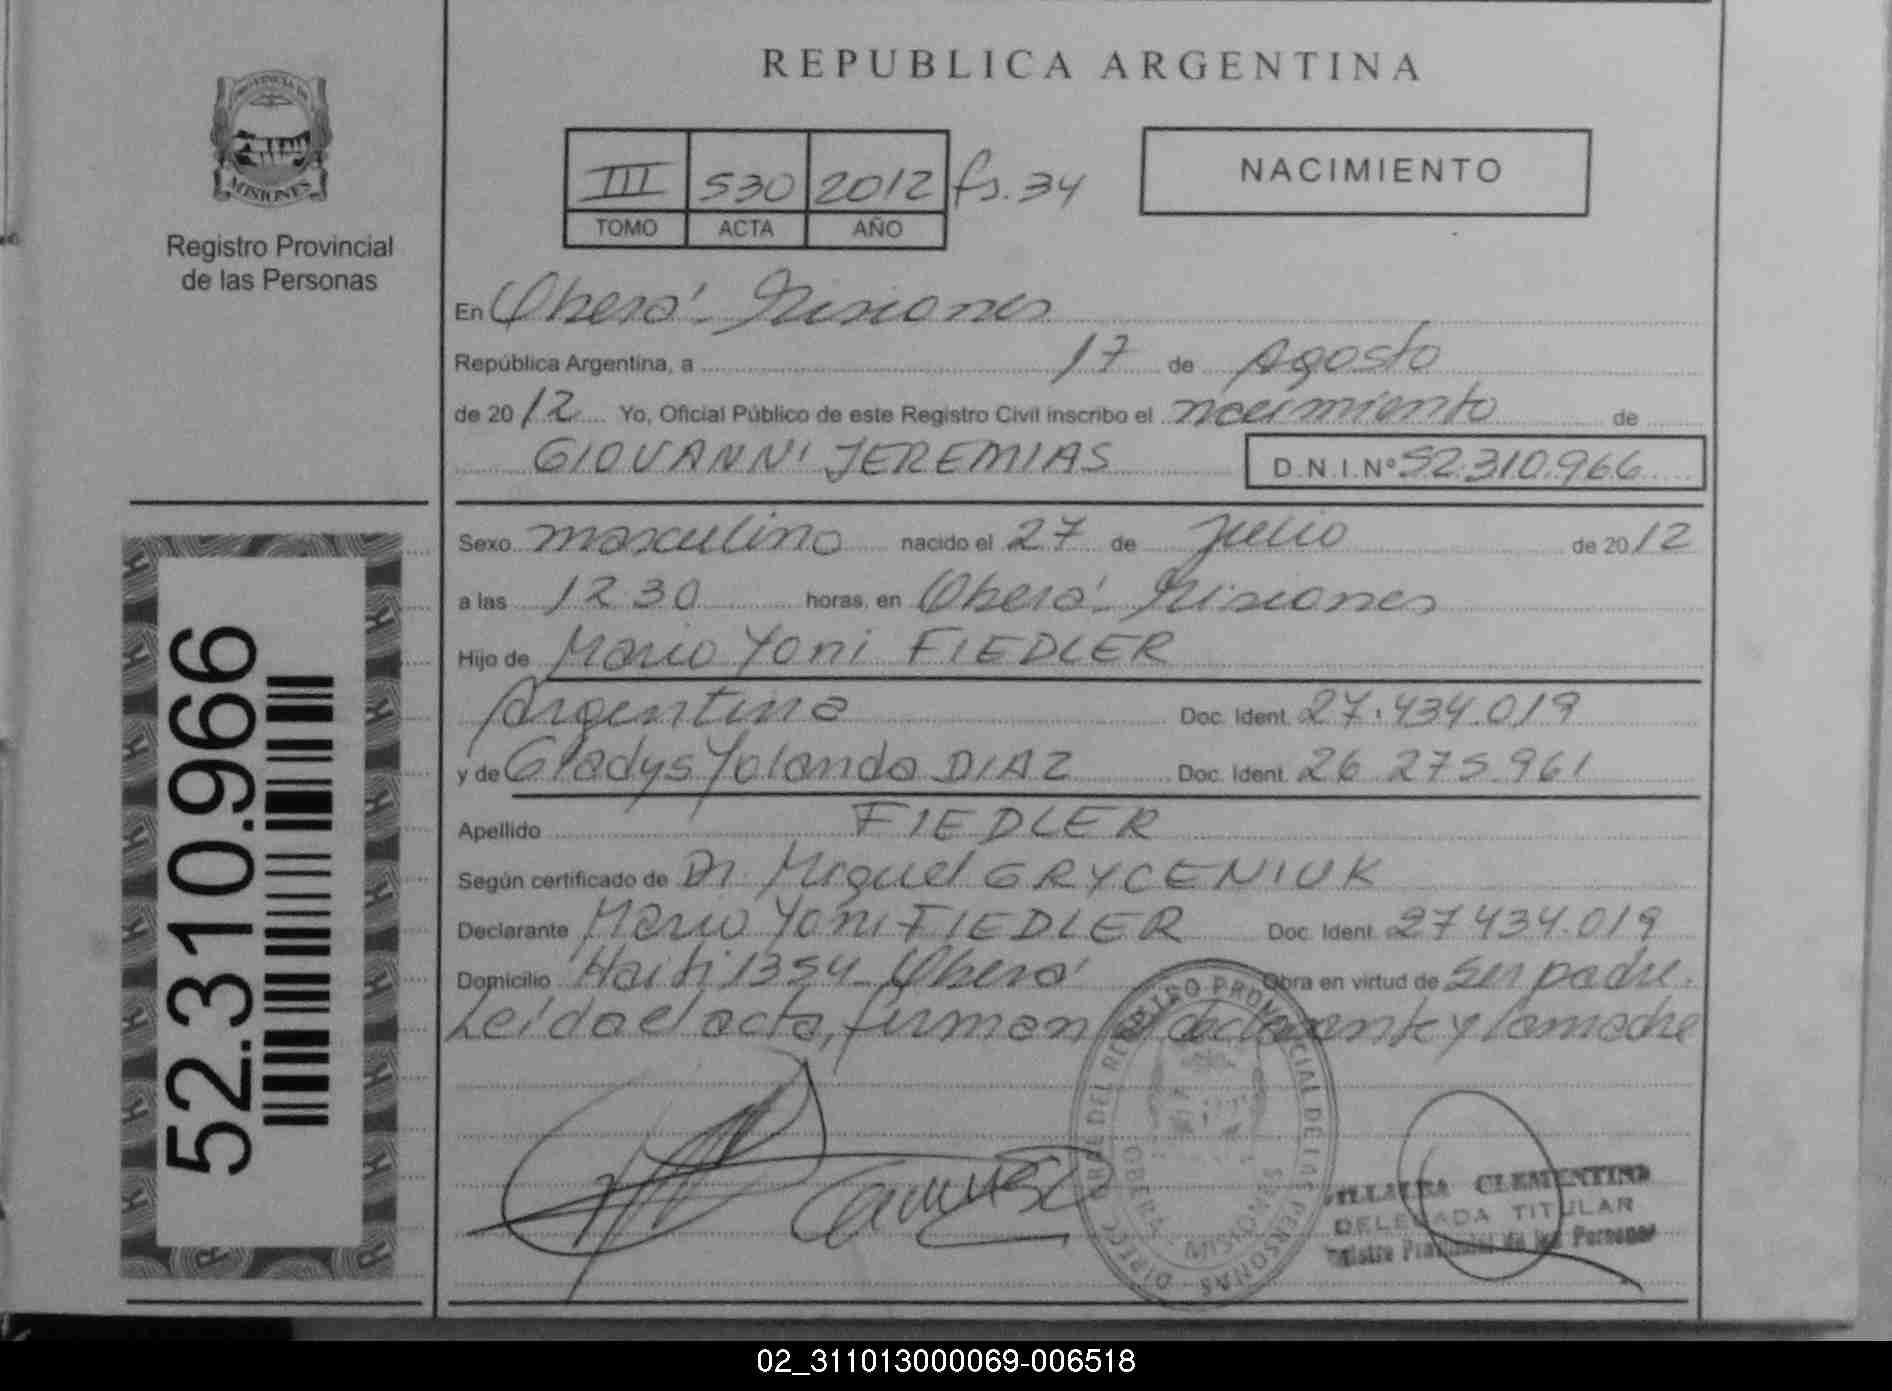 REPUBLICA ARGENTINA
PROVINCIA DE
MISIONES
Registro Provincial
de las Personas
III 530 2012 fs. 34
TOMO ACTA AÑO
NACIMIENTO
En Oberá - Misiones
República Argentina, a 17 de Agosto
de 2012 Yo, Oficial Público de este Registro Civil inscribo el nacimiento de
GIOVANNI JEREMIAS D.N.I.Nº 52.310.966
Sexo masculino nacido el 27 de Julio de 2012
a las 12.30 horas, en Oberá - Misiones
Hijo de Mario Yoni FIEDLER
Argentina Doc. Ident. 27.434.019
y de Gladys Yolanda DIAZ Doc. Ident. 26.275.961
Apellido FIEDLER
Según certificado de Dr. Miguel GRYCENIUK
Declarante Mario Yoni FIEDLER Doc. Ident. 27.434.019
Domicilio Haiti 1354 - Oberá Obra en virtud de ser padre.
Leida el acta, firman el declarante y la madre
52.310.966
REGISTRO PROVINCIAL DE LAS PERSONAS
OBERA MISIONES
VILLALBA CLEMENTINA
DELEGADA TITULAR
Registro Provincial de las Personas
02_311013000069-006518